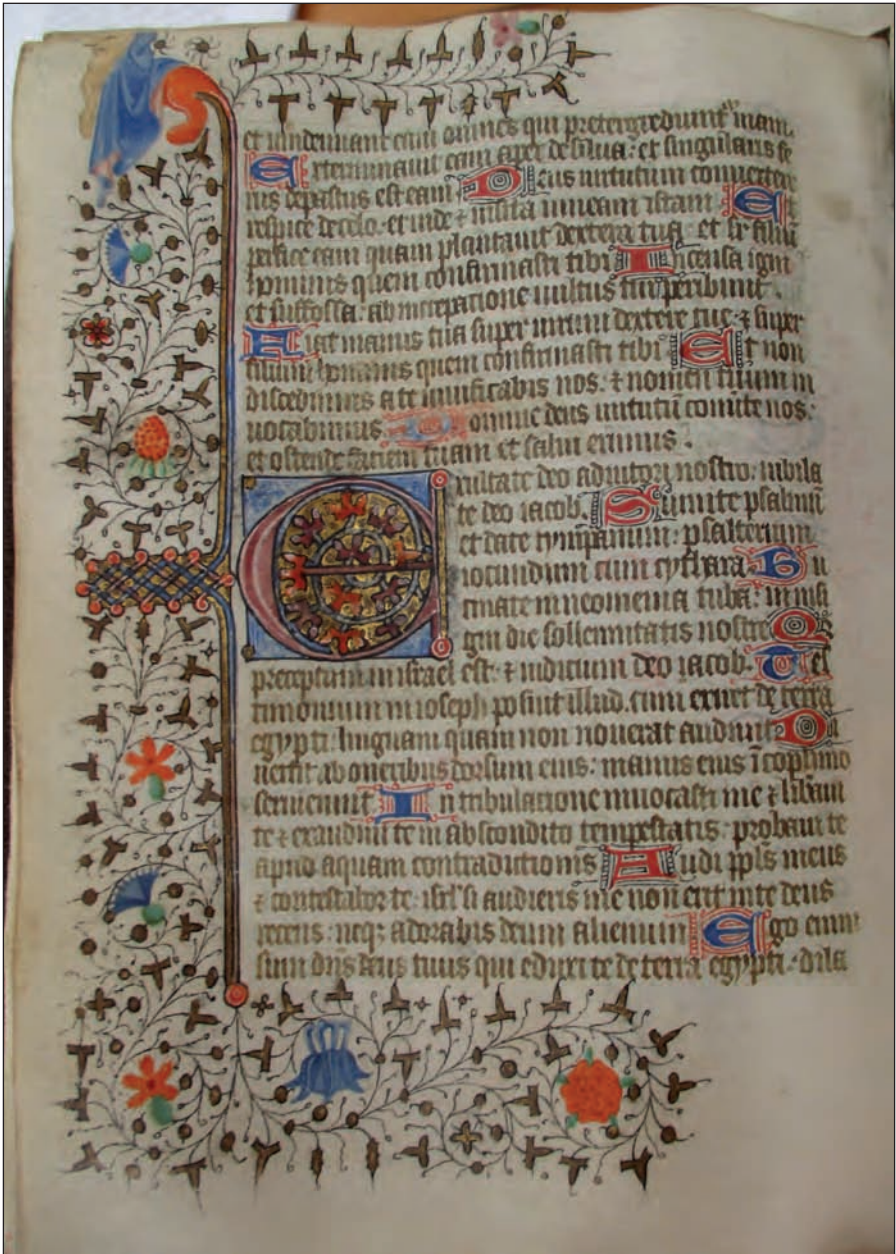 et uindemiant eam omnes qui pretergrediunt uiam.
Exterminauit eam aper de silua: et singularis fe
rus depastus est eam Deus uirtutum conuertere
respice de celo. et uide ⁊ uisita uineam istam. Et
perfice eam quam plantauit dextera tua et sr filiū
hominis quem confirmasti tibi Incensa igni
et suffossa. ab increpatione uultus tui peribunt.
Fiat manus tua super uirum dextere tue: ⁊ super
filium hominis quem confirmasti tibi Et non
discedimus a te uiuificabis nos: ⁊ nomen tuum in
uocabimus Domine deus uirtutū cōuerte nos:
et ostende faciem tuam et salui erimus.
Exultate deo adiutori nostro. iubila
te deo iacob. Sumite psalmū
et date tympanum: psalterium
iocundum cum cythara Bu
cinate in neomenia tuba: in insi
gni die sollennitatis nostre Q
preceptum in israel est: ⁊ iudicium deo iacob. Tes
timonium in ioseph posuit illud. cum exiret de terra
egypti: linguam quam non nouerat audiuit Di
uertit ab oneribus dorsum eius: manus eius ī cophino
seruierunt In tribulatione inuocasti me ⁊ libaui
te ⁊ exaudiui te in abscondito tempestatis: probaui te
apud aquam contradictionis Audi ppl̄s meus
⁊ contestabor te: isrl' si audieris me non erit in te deus
recens: neq; adorabis deum alienum Ego enim
sum dn̄s deus tuus qui eduxi te de terra egypti: dila